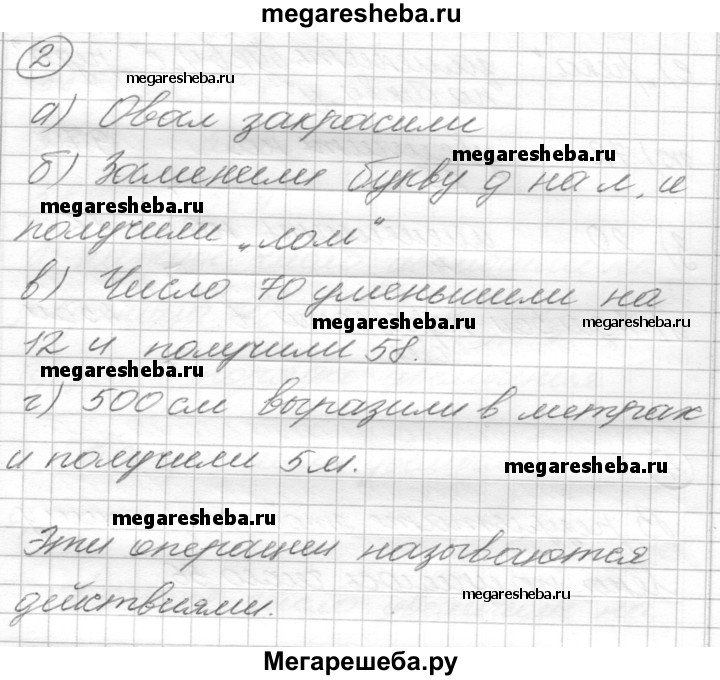 megaresheba.ru
2
megaresheba.ru
а) Овал закрасили
megaresheba.ru
б) Заменили букву д на л, и
megaresheba.ru
получили „лом“
в) Число 70 уменьшили на
megaresheba.ru
megaresheba.ru
12 и получили 58.
megaresheba.ru
г) 500 см выразили в метрах
и получили 5 м.
megaresheba.ru
megaresheba.ru
Эти операции называются
megaresheba.ru
действиями.
Мегарешеба.ру